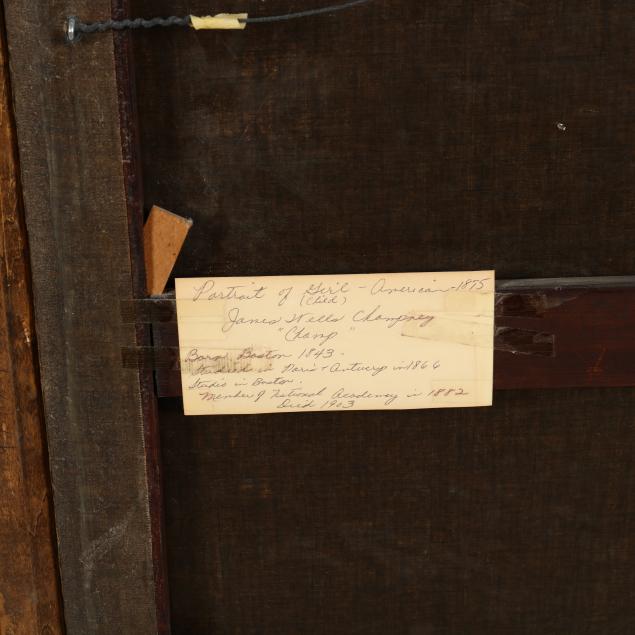 Portrait of Girl - American - 1875
(Child)
James Wells Champney
"Champ"
Born Boston 1843 -
Studied in Paris + Antwerp in 1866
Studio in Boston.
Member of National Academy in 1882
Died 1903